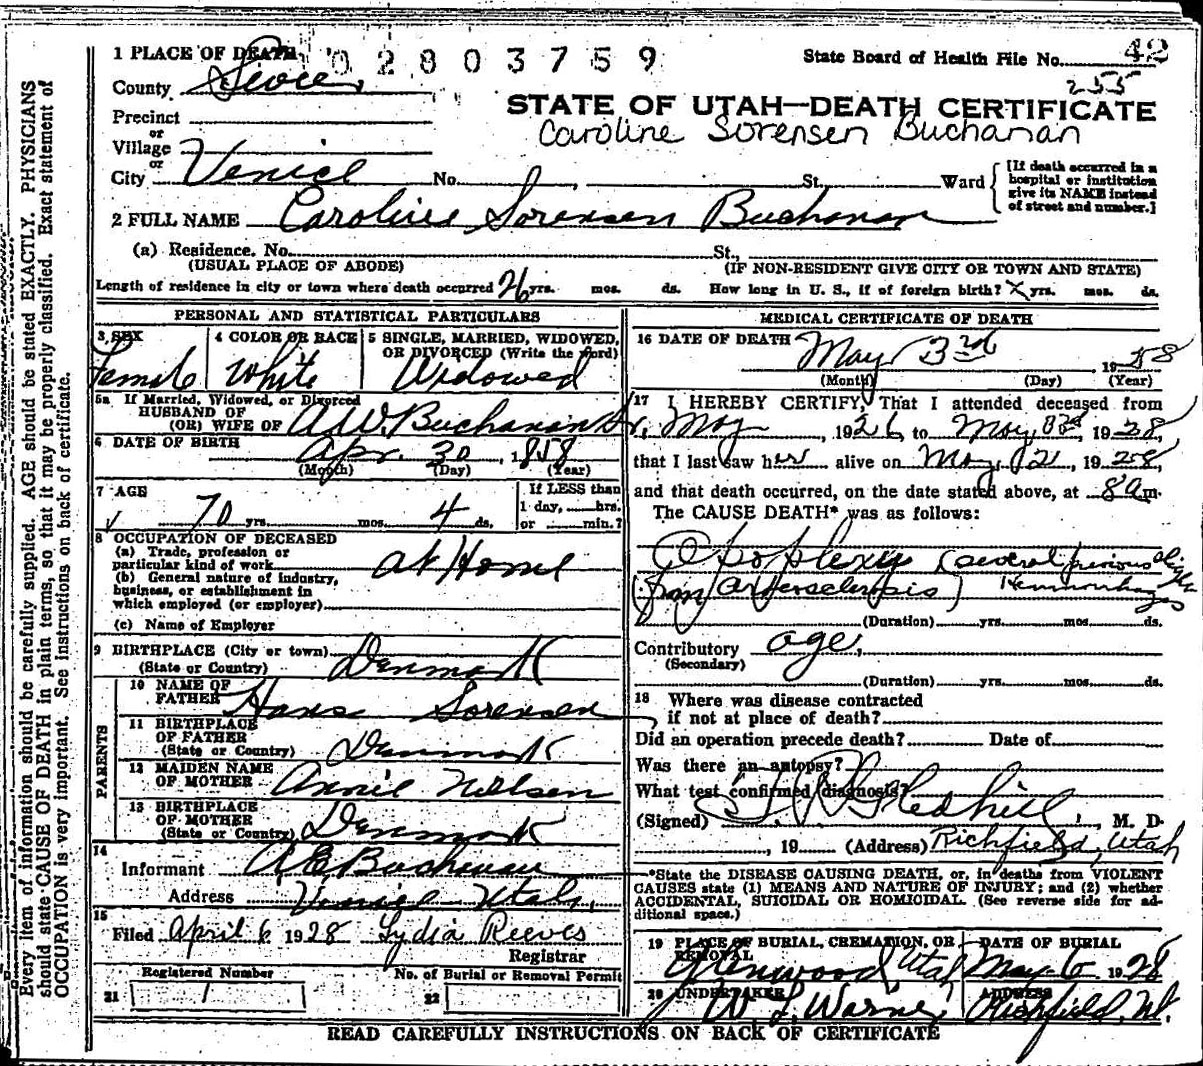 1 PLACE OF DEATH 02803759
State Board of Health File No. 42
County Sevier
255
STATE OF UTAH—DEATH CERTIFICATE
Caroline Sorensen Buchanan
Precinct
or
Village
or
City Venice No. St. Ward
[If death occurred in a hospital or institution give its NAME instead of street and number.]
2 FULL NAME Caroline Sorensen Buchanan
(a) Residence. No. St.,
(USUAL PLACE OF ABODE) (IF NON-RESIDENT GIVE CITY OR TOWN AND STATE)
Length of residence in city or town where death occurred 26 yrs. mos. ds. How long in U. S., if of foreign birth? yrs. mos. ds.
PERSONAL AND STATISTICAL PARTICULARS
3 SEX
Female
4 COLOR OR RACE
White
5 SINGLE, MARRIED, WIDOWED,
OR DIVORCED (Write the word)
Widowed
5a If Married, Widowed, or Divorced
HUSBAND OF
(OR) WIFE OF A.W. Buchanan Sr.
6 DATE OF BIRTH Apr. 30, 1858
(Month) (Day) (Year)
7 AGE
70 yrs. mos. 4 ds.
If LESS than
1 day, hrs.
or min.?
8 OCCUPATION OF DECEASED
(a) Trade, profession or
particular kind of work at Home
(b) General nature of industry,
business, or establishment in
which employed (or employer)
(c) Name of Employer
9 BIRTHPLACE (City or town)
(State or Country) Denmark
PARENTS
10 NAME OF
FATHER Hans Sorensen
11 BIRTHPLACE
OF FATHER
(State or Country) Denmark
12 MAIDEN NAME
OF MOTHER Annie Nelsen
13 BIRTHPLACE
OF MOTHER
(State or Country) Denmark
14
Informant A E Buchanan
Address Venice Utah.
15
Filed April 6 1928 Lydia Reeves
Registrar
Registered Number No. of Burial or Removal Permit
21 1 22
MEDICAL CERTIFICATE OF DEATH
16 DATE OF DEATH May 3rd 1928
(Month) (Day) (Year)
17 I HEREBY CERTIFY, That I attended deceased from
May, 1926, to May, 3rd, 1928,
that I last saw her alive on May, 2, 1928,
and that death occurred, on the date stated above, at 8 am.
The CAUSE DEATH* was as follows:
Apoplexy (several previous slight
from Arteriosclerosis) Hemorrhages
(Duration) yrs. mos. ds.
Contributory age,
(Secondary)
(Duration) yrs. mos. ds.
18 Where was disease contracted
if not at place of death?
Did an operation precede death? Date of
Was there an autopsy?
What test confirmed diagnosis?
(Signed) Gledhill, M. D.
, 19 (Address) Richfield, Utah
*State the DISEASE CAUSING DEATH, or, in deaths from VIOLENT
CAUSES state (1) MEANS AND NATURE OF INJURY; and (2) whether
ACCIDENTAL, SUICIDAL OR HOMICIDAL. (See reverse side for ad-
ditional space.)
19 PLACE OF BURIAL, CREMATION, OR
REMOVAL
Glenwood, Utah
DATE OF BURIAL
May 6 1928
20 UNDERTAKER
W. L. Warner
ADDRESS
Richfield, Ut.
READ CAREFULLY INSTRUCTIONS ON BACK OF CERTIFICATE
Every item of information should be carefully supplied. AGE should be stated EXACTLY. PHYSICIANS
should state CAUSE OF DEATH in plain terms, so that it may be properly classified. Exact statement of
OCCUPATION is very important. See instructions on back of certificate.